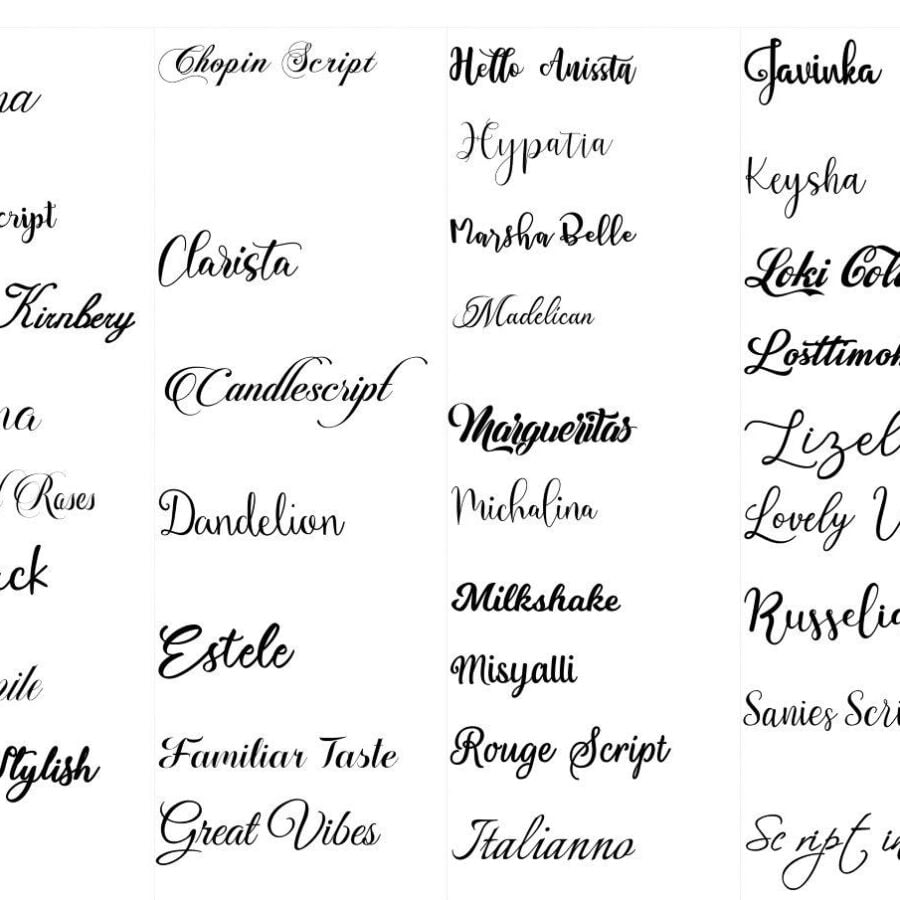 na
cript
Kirnbery
na
Rases
ck
pile
Stylish
Chopin Script
Clarista
Candlescript
Dandelion
Estele
Familiar Taste
Great Vibes
Hello Anissta
Hypatia
Marsha Belle
Madelican
Margueritas
Michalina
Milkshake
Misyalli
Rouge Script
Italianno
Javinka
Keysha
Loki Col
Losttimo
Lizel
Lovely V
Russelia
Sanies Scri
Script in